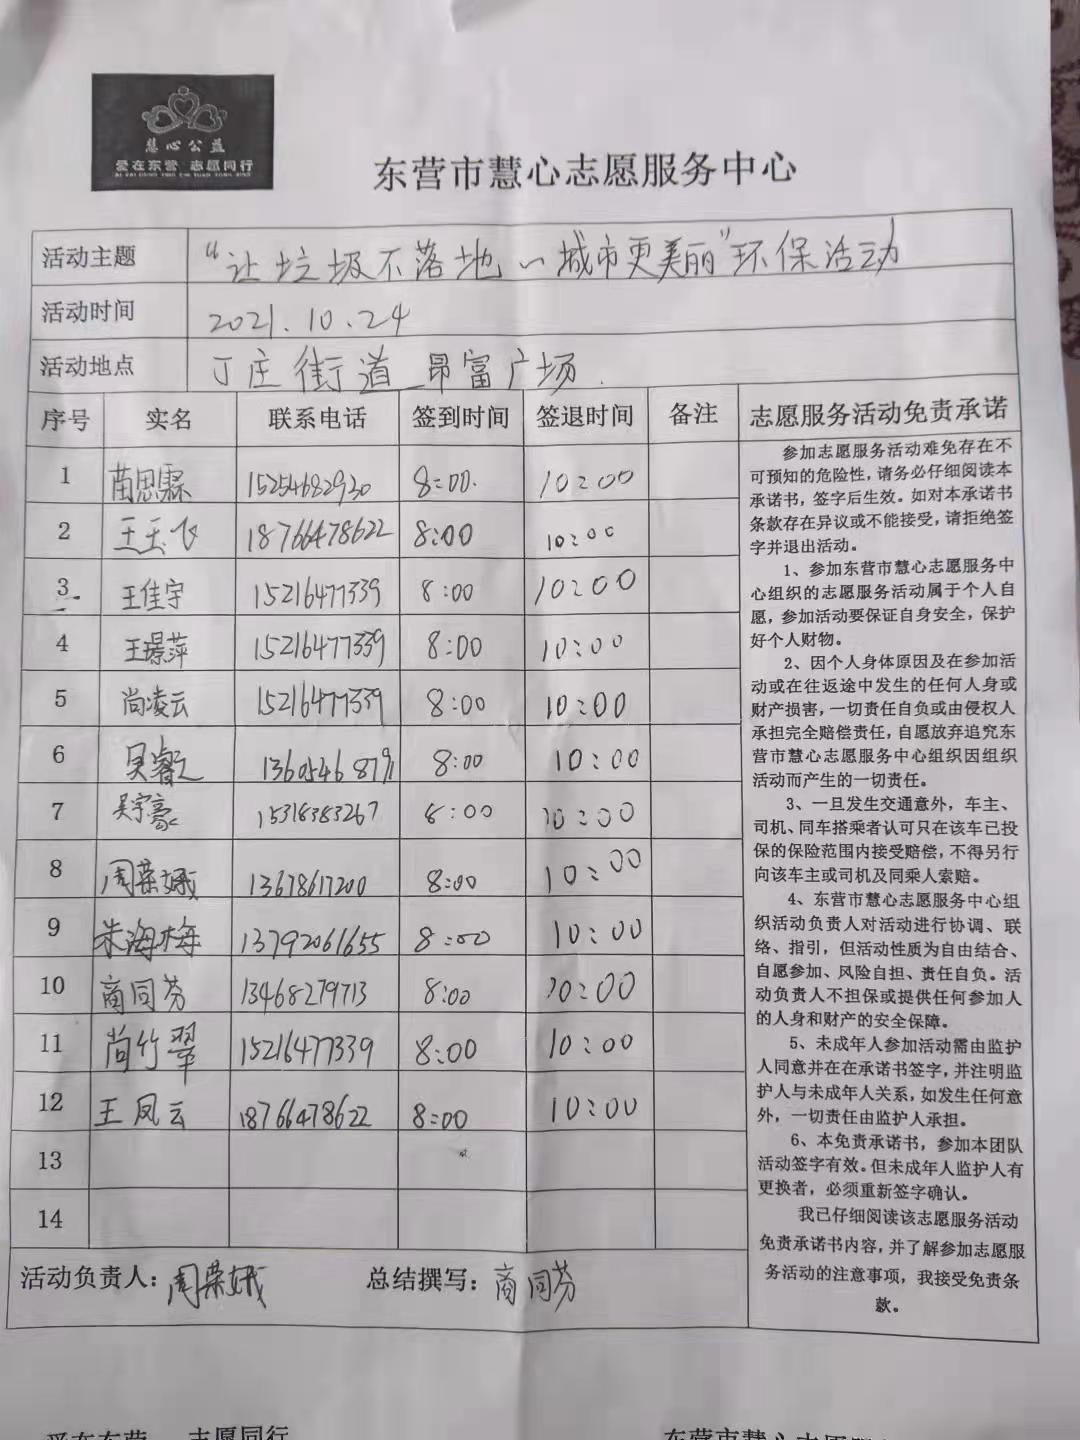 慧心公益
爱在东营 志愿同行
AI ZAI DONG YING ZHI YUAN TONG XING
东营市慧心志愿服务中心
活动主题 “让垃圾不落地~城市更美丽”环保活动
活动时间 2021.10.24
活动地点 丁庄街道 昂富广场.
序号 实名 联系电话 签到时间 签退时间 备注
1 苗思霖 15254682930 8:00. 10:00
2 王玉飞 18766478622 8:00 10:00
3 王佳宇 15216477339 8:00 10:00
4 王璟萍 15216477339 8:00 10:00
5 尚凌云 15216477339 8:00 10:00
6 13605468791 8:00 10:00
7 吴宇豪 15318383267 8:00 10:00
8 周荣娥 13678617200 8:00 10:00
9 朱海梅 13792061655 8:00 10:00
10 商同芬 13468279713 8:00 10:00
11 尚竹翠 15216477339 8:00 10:00
12 王凤云 18766478622 8:00 10:00
13
14
活动负责人：周荣娥 总结撰写：商同芬
志愿服务活动免责承诺
参加志愿服务活动难免存在不
可预知的危险性，请务必仔细阅读本
承诺书，签字后生效。如对本承诺书
条款存在异议或不能接受，请拒绝签
字并退出活动。
1、参加东营市慧心志愿服务中
心组织的志愿服务活动属于个人自
愿，参加活动要保证自身安全，保护
好个人财物。
2、因个人身体原因及在参加活
动或在往返途中发生的任何人身或
财产损害，一切责任自负或由侵权人
承担完全赔偿责任，自愿放弃追究东
营市慧心志愿服务中心组织因组织
活动而产生的一切责任。
3、一旦发生交通意外，车主、
司机、同车搭乘者认可只在该车已投
保的保险范围内接受赔偿，不得另行
向该车主或司机及同乘人索赔。
4、东营市慧心志愿服务中心组
织活动负责人对活动进行协调、联
络、指引，但活动性质为自由结合、
自愿参加、风险自担、责任自负。活
动负责人不担保或提供任何参加人
的人身和财产的安全保障。
5、未成年人参加活动需由监护
人同意并在在承诺书签字，并注明监
护人与未成年人关系，如发生任何意
外，一切责任由监护人承担。
6、本免责承诺书，参加本团队
活动签字有效。但未成年人监护人有
更换者，必须重新签字确认。
我已仔细阅读该志愿服务活动
免责承诺书内容，并了解参加志愿服
务活动的注意事项，我接受免责条
款。
爱在东营 志愿同行
东营市慧心志愿服务